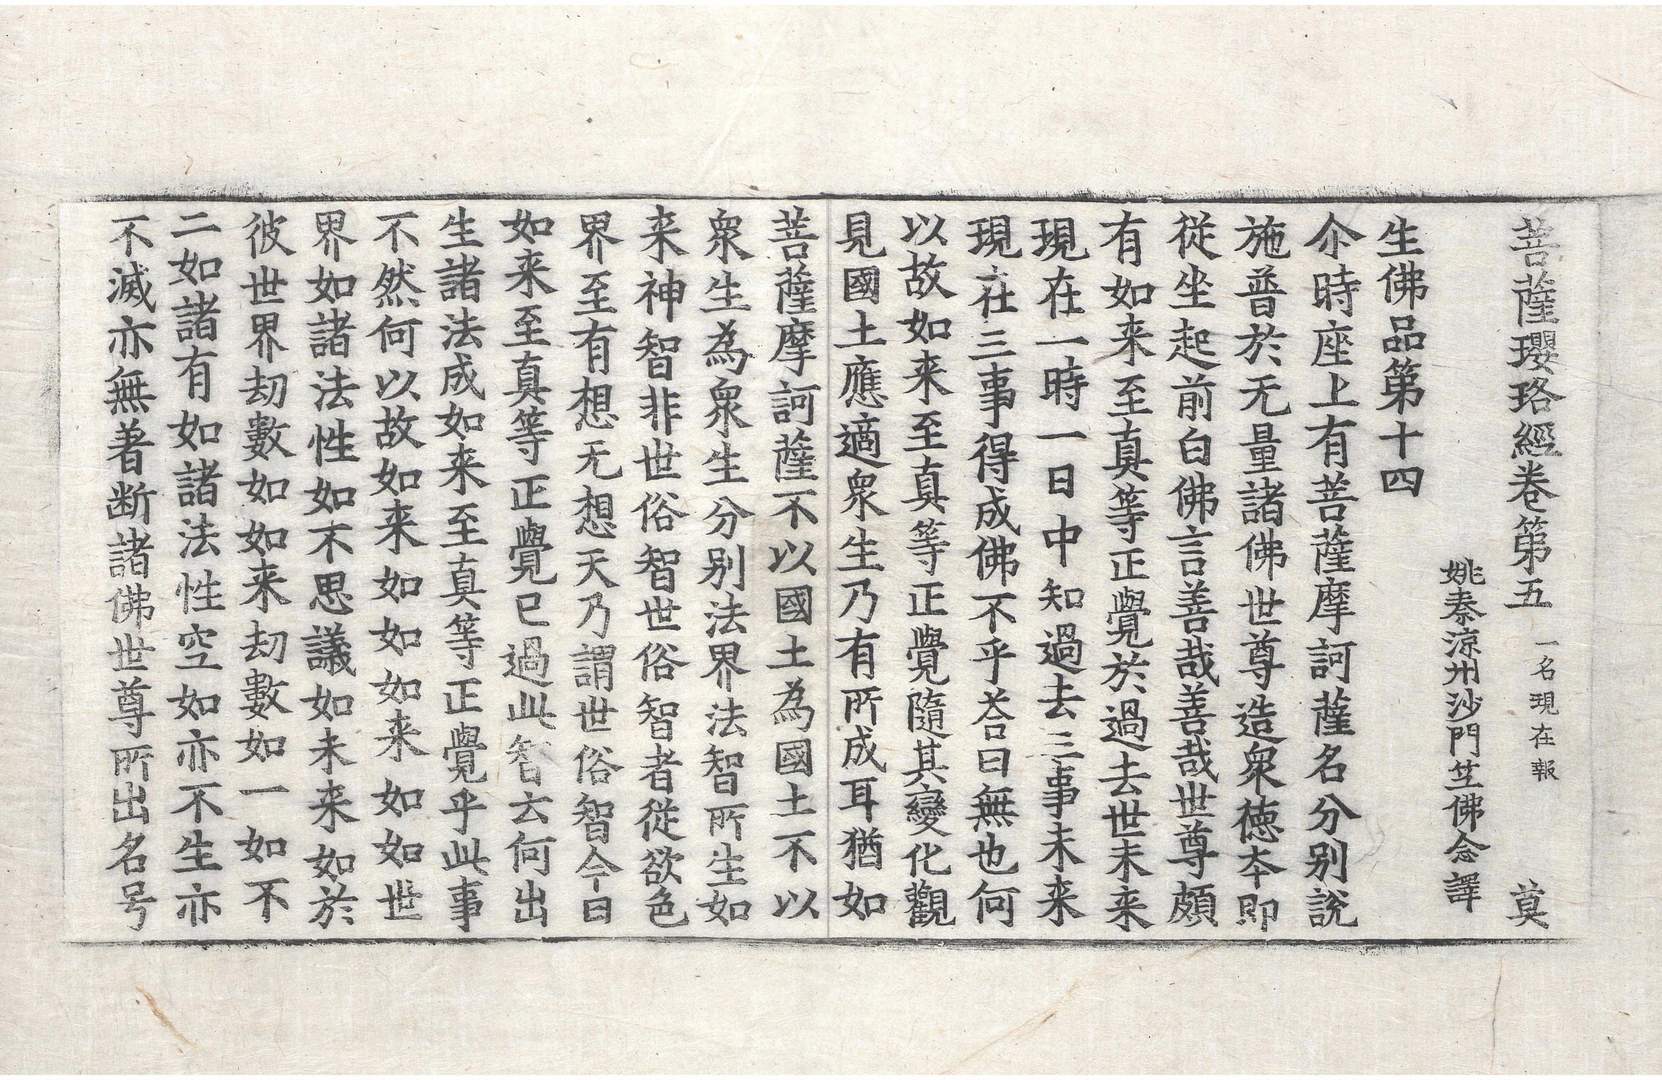 菩薩瓔珞經卷第五 一名現在報 莫
姚秦涼州沙門竺佛念譯
生佛品第十四
尒時座上有菩薩摩訶薩名分别說
施普於无量諸佛世尊造衆徳夲即
從坐起前白佛言善哉善哉世尊頗
有如来至真等正覺於過去世未来
現在一時一日中知過去三事未来
現在三事得成佛不乎荅曰無也何
以故如来至真等正覺隨其變化觀
見國土應適衆生乃有所成耳猶如
菩薩摩訶薩不以國土為國土不以
衆生為衆生分别法界法智所生如
来神智非世俗智世俗智者從欲色
界至有想无想天乃謂世俗智今日
如来至真等正覺已過此智去何出
生諸法成如来至真等正覺乎此事
不然何以故如来如如如来如如世
界如諸法性如不思議如未来如於
彼世界劫數如如来劫數如一如不
二如諸有如諸法性空如亦不生亦
不滅亦無著断諸佛世尊所出名号